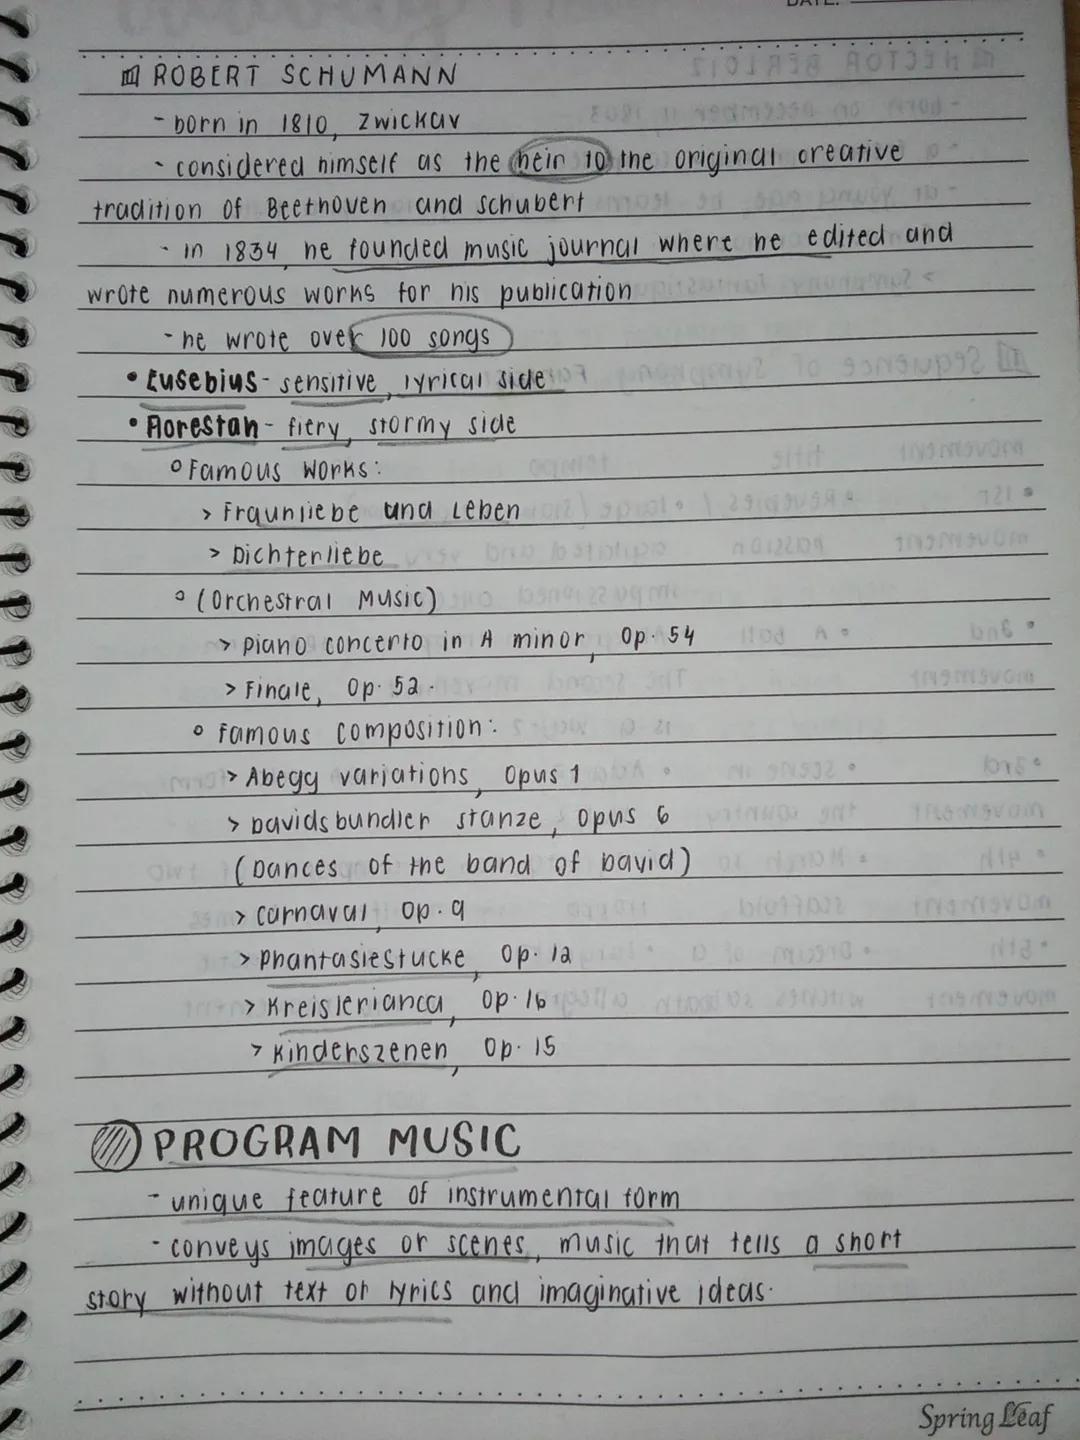 DATE:
ROBERT SCHUMANN
- born in 1810, Zwickav
- considered himself as the heir to the original creative
tradition of Beethoven and Schubert
- in 1834, he founded music journal where he edited and
wrote numerous works for his publication
- he wrote over 100 songs
• Eusebius - sensitive, lyrical side
• Florestan - fiery, stormy side
° Famous works:
> Fraunliebe und Leben
> Dichterliebe
° (Orchestral Music)
> Piano concerto in A minor, Op. 54
> Finale, Op. 52.
° Famous composition:
> Abegg variations, Opus 1
> Davidsbundler stanze, opus 6
(Dances of the band of David)
> carnaval, Op. 9
> Phantasiestucke, Op. 12
> Kreislerianca, Op. 16
> Kinderszenen, Op. 15
PROGRAM MUSIC
- unique feature of instrumental form
- conveys images or scenes, music that tells a short
story without text or lyrics and imaginative ideas.
Spring Leaf